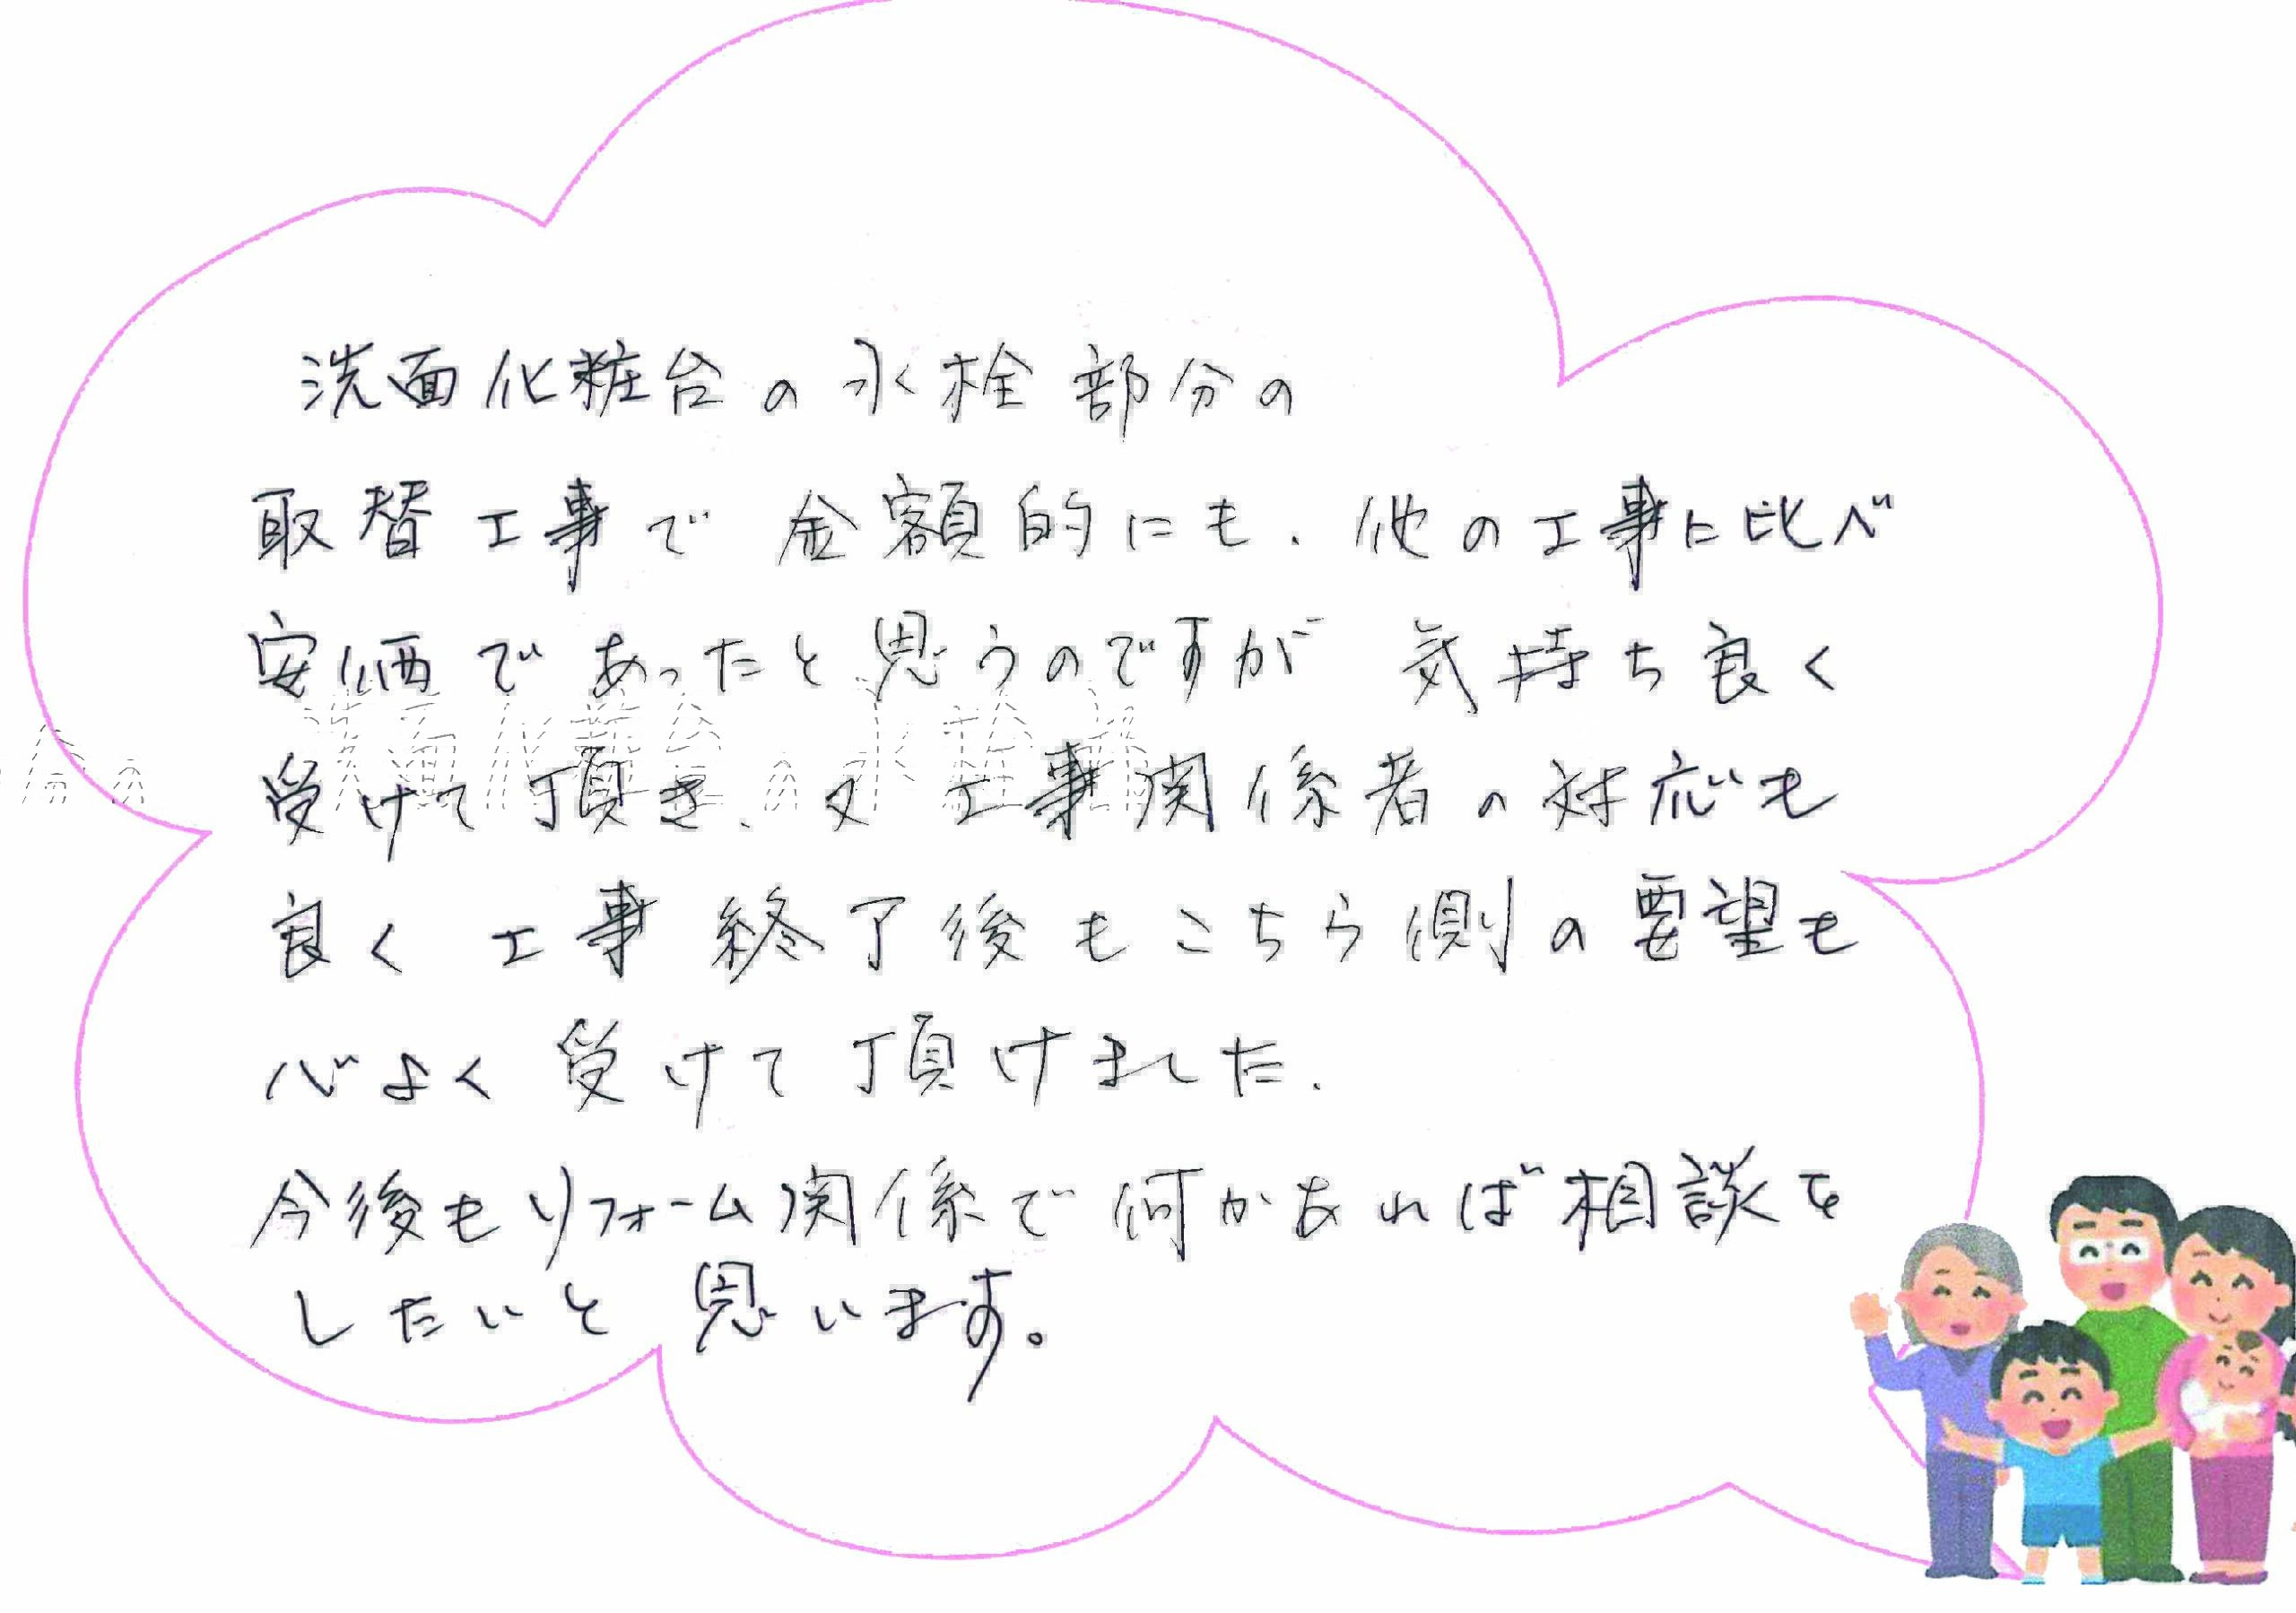 洗面化粧台の水栓部分の
取替工事で金額的にも、他の工事に比べ
安価であったと思うのですが気持ち良く
受けて頂き、又工事関係者の対応も
良く工事終了後もこちら側の要望も
心よく受けて頂けました。
今後もリフォーム関係で何かあれば相談を
したいと思います。